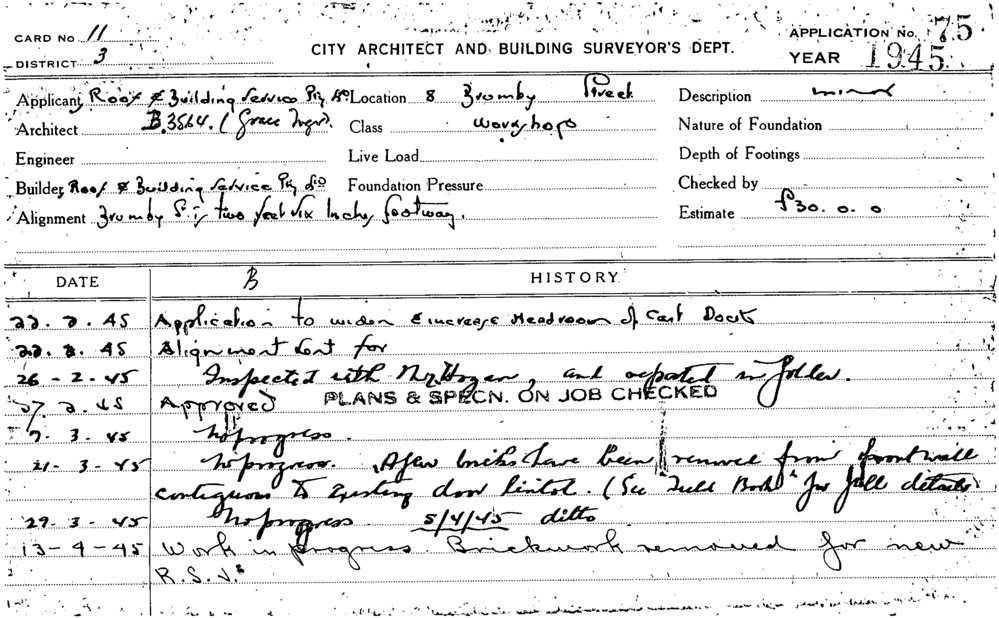 CARD No 11
DISTRICT 3
CITY ARCHITECT AND BUILDING SURVEYOR'S DEPT.
APPLICATION No. 75
YEAR 1945
Applicant Roof & Building Service Pty Ld Location 8 Brumby Street Description minor
Architect B.3564. (Grace Mgr). Class Workshops Nature of Foundation
Engineer Live Load Depth of Footings
Builder Roof & Building Service Pty Ld Foundation Pressure Checked by
Alignment Brumby St; two feet six Inches footway. Estimate £30. 0. 0
DATE B HISTORY
22. 2. 45 Application to widen & increase Headroom of Cart Dock
22. 2. 45 Alignment sent for
26 - 2. 45 Inspected with Mr Hogan, and reported in folder.
27. 2. 45 Approved PLANS & SPECN. ON JOB CHECKED
9. 3. 45 No progress.
21- 3. 45 No progress. A few bricks have been removed from front wall
contiguous to Existing door lintol. (See "Field Book" for full details
29. 3. 45 No progress 5/4/45 ditto
13-4-45 Work in progress. Brickwork removed for new
R.S.J.s